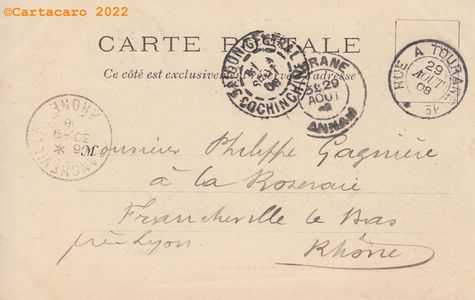 ©Cartacaro 2022
CARTE POSTALE
Ce côté est exclusivement réservé à l'adresse
SAIGON CENTRAL
1
SEPT
08
COCHINCHINE
TOURANE
29
AOUT
ANNAM
HUE A TOURANE
29
AOUT
08
FRANCHEVILLE
30-9
08
RHONE
M
Monsieur Philippe Gagnière
à la Roseraie
Francheville le Bas
près Lyon. Rhône